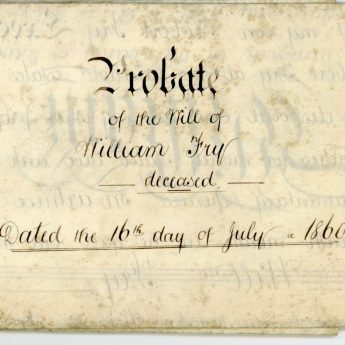 Probate
of the Will of
William Fry
deceased.
Dated the 16th day of July 1860